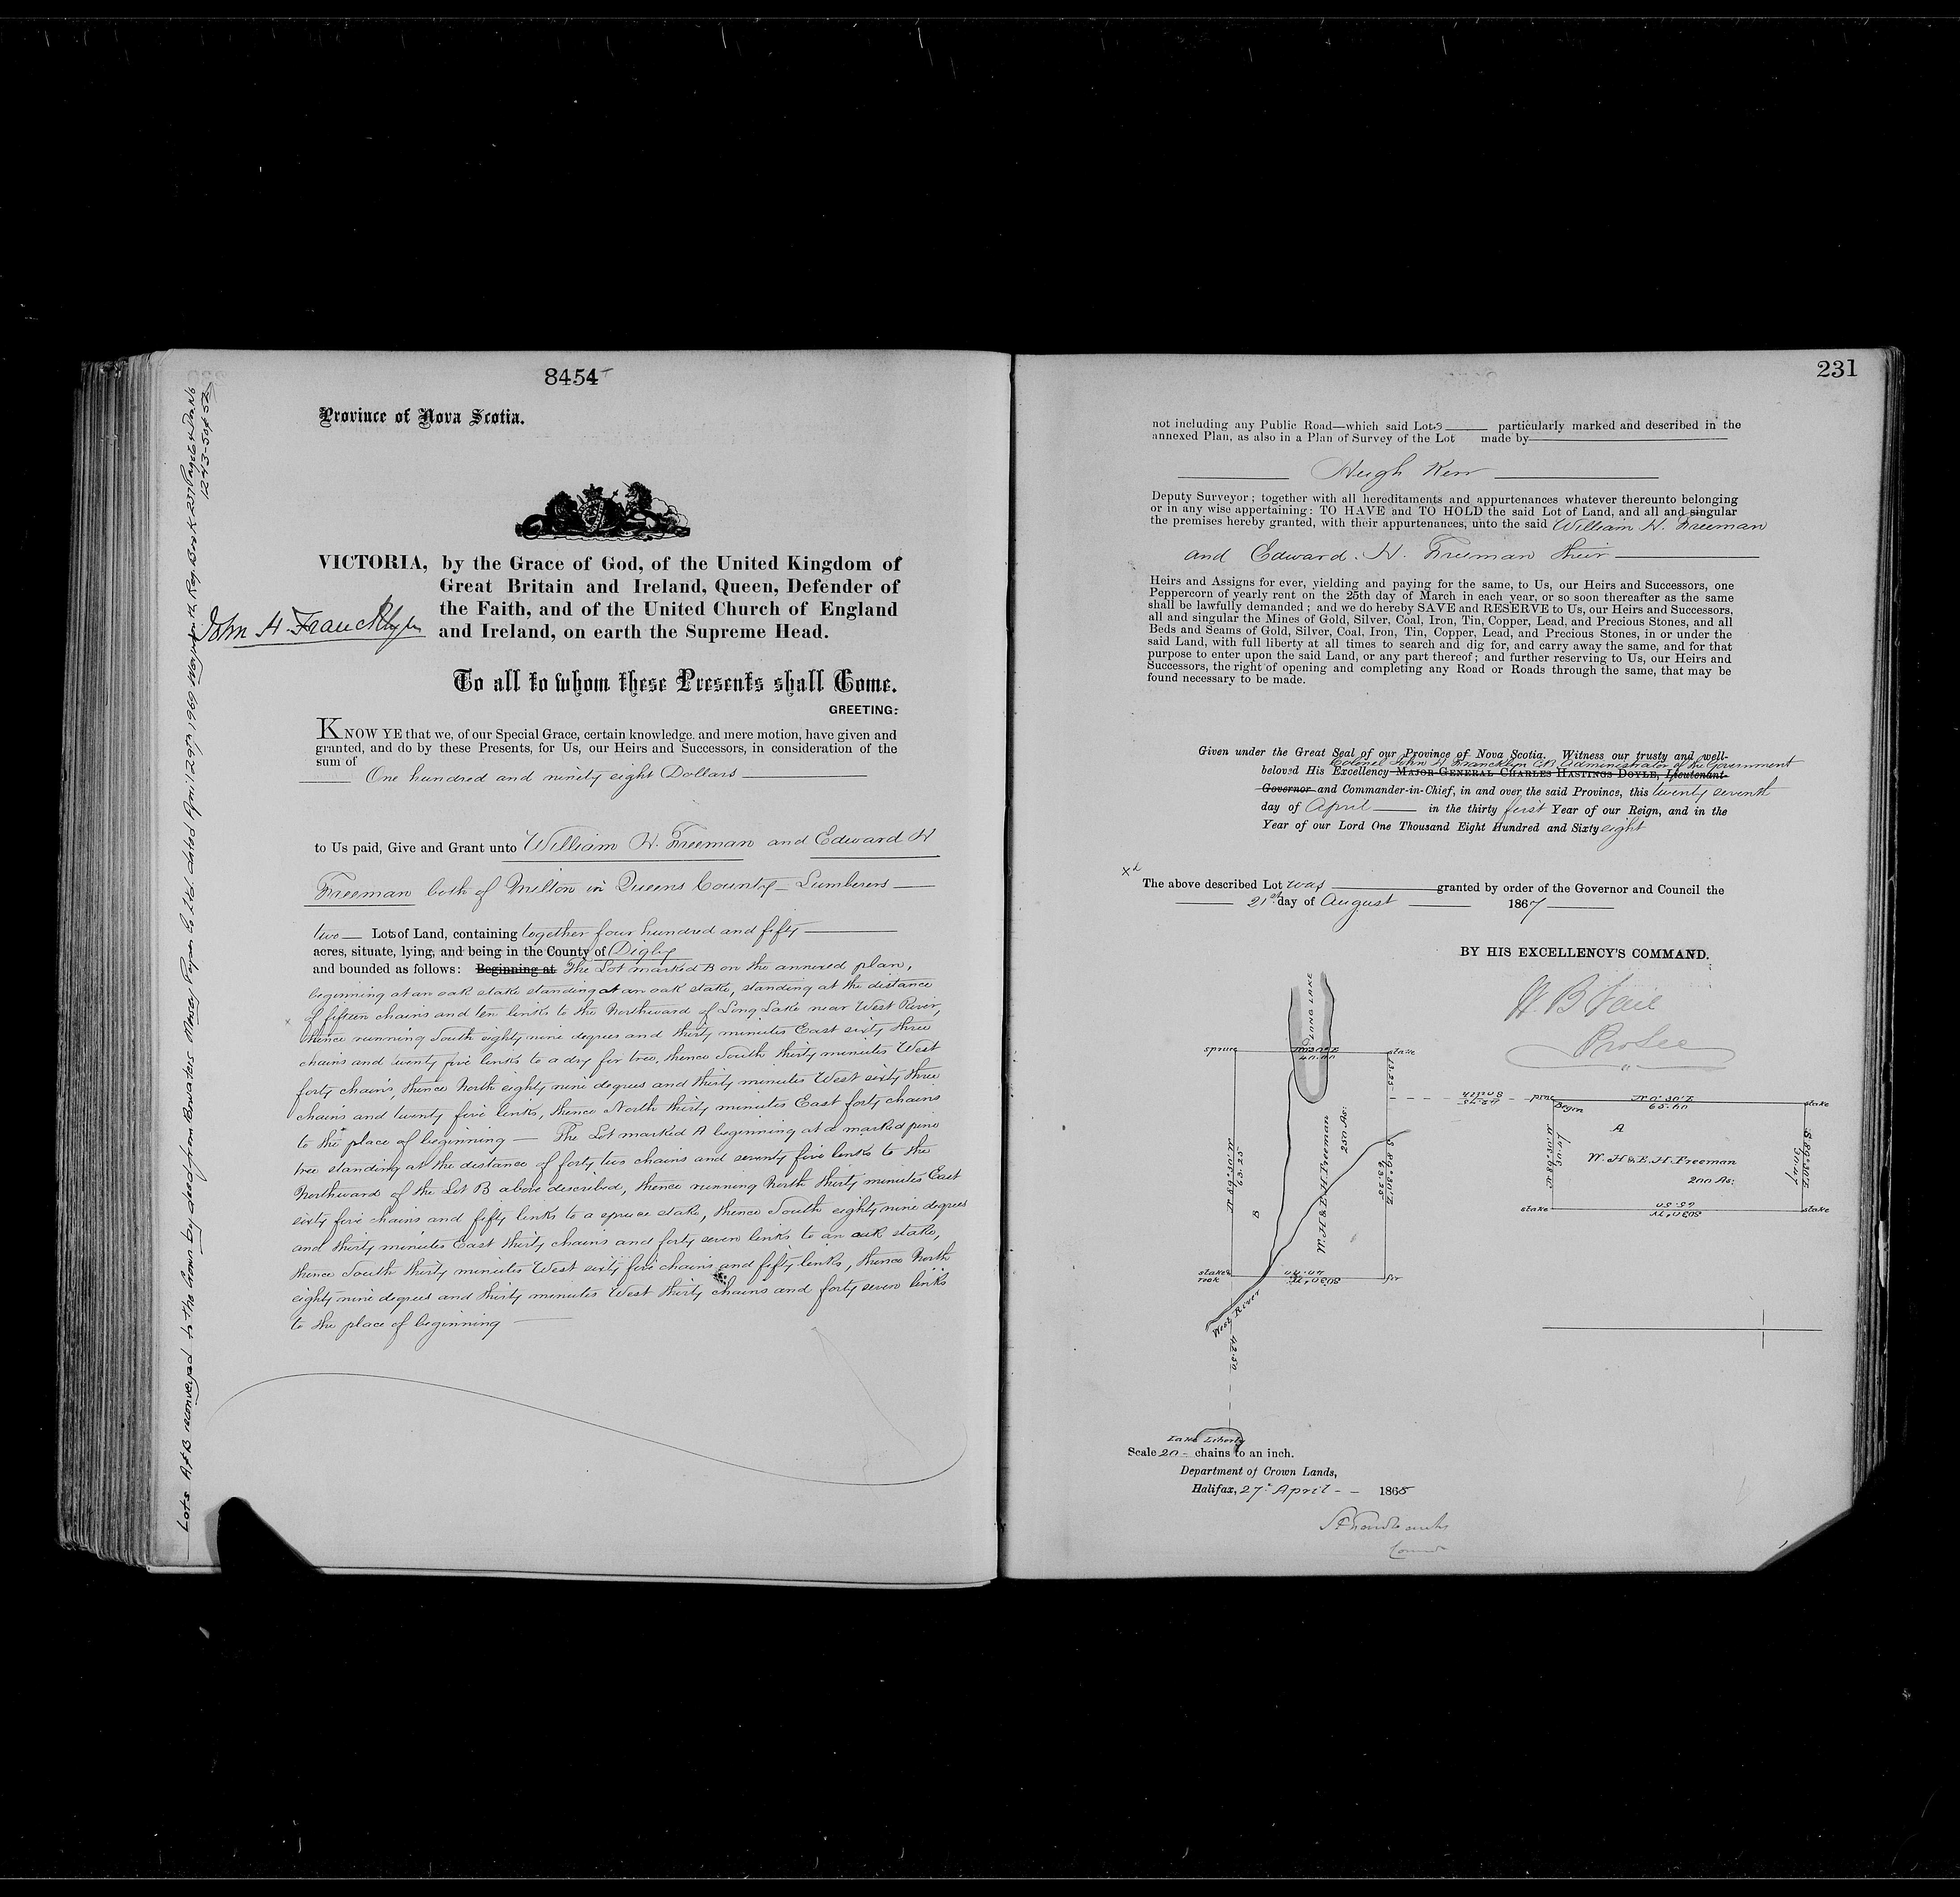 8454
Province of Nova Scotia.
VICTORIA, by the Grace of God, of the United Kingdom of
Great Britain and Ireland, Queen, Defender of
the Faith, and of the United Church of England
and Ireland, on earth the Supreme Head.
John H. Francklyn
To all to whom these Presents shall Come.
GREETING:
KNOW YE that we, of our Special Grace, certain knowledge. and mere motion, have given and
granted, and do by these Presents, for Us, our Heirs and Successors, in consideration of the
sum of
One hundred and ninety eight Dollars
to Us paid, Give and Grant unto William H. Freeman and Edward H
Freeman both of Milton in Queens County Lumberers
two Lots of Land, containing together four hundred and fifty
acres, situate, lying, and being in the County of Digby
and bounded as follows: Beginning at The Lot marked B on the annexed plan,
beginning at an oak stake standing at an oak stake, standing at the distance
of fifteen chains and ten links to the Northward of Long Lake near West River,
thence running South eighty nine degrees and thirty minutes East sixty three
chains and twenty five links to a dry fir tree, thence South thirty minutes West
forty chains, thence North eighty nine degrees and thirty minutes West sixty three
chains and twenty five links, thence North thirty minutes East forty chains
to the place of beginning — The Lot marked A beginning at a marked pine
tree standing at the distance of forty two chains and seventy five links to the
Northward of the Lot B above described, thence running North thirty minutes East
sixty five chains and fifty links to a spruce stake, thence South eighty nine degrees
and thirty minutes East thirty chains and forty seven links to an oak stake,
thence South thirty minutes West sixty five chains and fifty links, thence North
eighty nine degrees and thirty minutes West thirty chains and forty seven links
to the place of beginning
Lots A & B reconveyed to the Crown by deed from Bowaters Mersey Paper Co Ltd. dated April 29th, 1969
231
not including any Public Road—which said Lots particularly marked and described in the
annexed Plan, as also in a Plan of Survey of the Lot made by
Hugh Kerr
Deputy Surveyor; together with all hereditaments and appurtenances whatever thereunto belonging
or in any wise appertaining: TO HAVE and TO HOLD the said Lot of Land, and all and singular
the premises hereby granted, with their appurtenances, unto the said William H. Freeman
and Edward. H. Freeman their
Heirs and Assigns for ever, yielding and paying for the same, to Us, our Heirs and Successors, one
Peppercorn of yearly rent on the 25th day of March in each year, or so soon thereafter as the same
shall be lawfully demanded; and we do hereby SAVE and RESERVE to Us, our Heirs and Successors,
all and singular the Mines of Gold, Silver, Coal, Iron, Tin, Copper, Lead, and Precious Stones, and all
Beds and Seams of Gold, Silver, Coal, Iron, Tin, Copper, Lead, and Precious Stones, in or under the
said Land, with full liberty at all times to search and dig for, and carry away the same, and for that
purpose to enter upon the said Land, or any part thereof; and further reserving to Us, our Heirs and
Successors, the right of opening and completing any Road or Roads through the same, that may be
found necessary to be made.
Given under the Great Seal of our Province of Nova Scotia. Witness our trusty and well-
Colonel John H Francklyn CB Administrator of the Government
beloved His Excellency MAJOR GENERAL CHARLES HASTINGS DOYLE, Lieutenant-
Governor and Commander-in-Chief, in and over the said Province, this twenty seventh
day of April in the thirty first Year of our Reign, and in the
Year of our Lord One Thousand Eight Hundred and Sixty eight
The above described Lot was granted by order of the Governor and Council the
21st day of August 1867
BY HIS EXCELLENCY'S COMMAND.
W. B Vail
Pro Sec
LONG LAKE
spruce
stake
N 0°30'E
40.00
13.25
42.75
North
pine
Began
N 0°30'E
stake
A
W. H & E. H. Freeman
200 As:
S 89°30'E
30.47
N 89°30'W
30.47
stake
65.50
S 0°30'W
stake
N 89°30'W
63.25
B
W. H & E. H Freeman
250 As:
S 89°30'E
63.25
stake &
rock
40.00
S 0°30'W
fir
West River
42.50
Lake Liberty
Scale 20 chains to an inch.
Department of Crown Lands,
Halifax, 27 April 1868